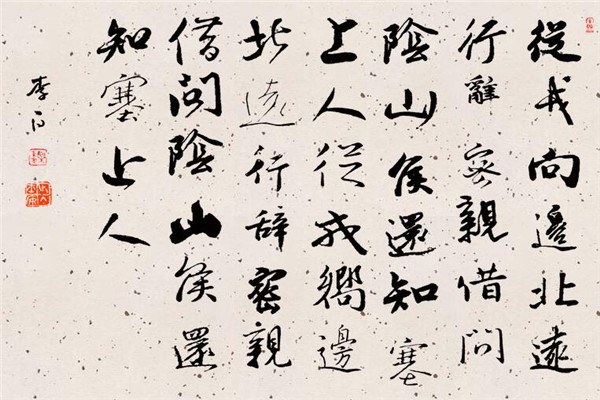 從戎向邊北遠
行辭密親借問
陰山候還知塞
上人從戎嚮邊
北遠行辞密親
借問陰山候還
知塞上人
李